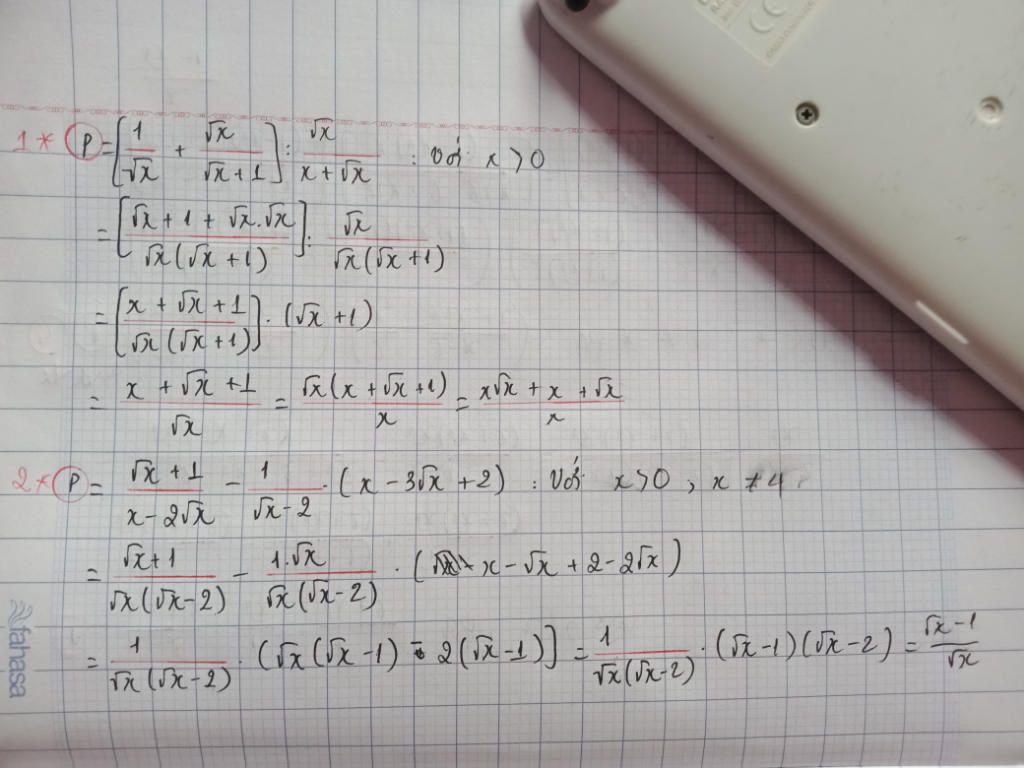 1* P = [1/√x + √x/(√x + 1)] : √x/(x + √x) : với x > 0
= [(√x + 1 + √x.√x)/(√x(√x + 1))] : √x/(√x(√x + 1))
= [(x + √x + 1)/(√x(√x + 1))] . (√x + 1)
= (x + √x + 1)/√x = √x(x + √x + 1)/x = (x√x + x + √x)/x
2* P = (√x + 1)/(x - 2√x) - 1/(√x - 2) . (x - 3√x + 2) : Với x > 0, x ≠ 4
= (√x + 1)/(√x(√x - 2)) - 1.√x/(√x(√x - 2)) . (x - √x + 2 - 2√x)
= 1/(√x(√x - 2)) . (√x(√x - 1) - 2(√x - 1)] = 1/(√x(√x - 2)) . (√x - 1)(√x - 2) = (√x - 1)/√x
fahasa